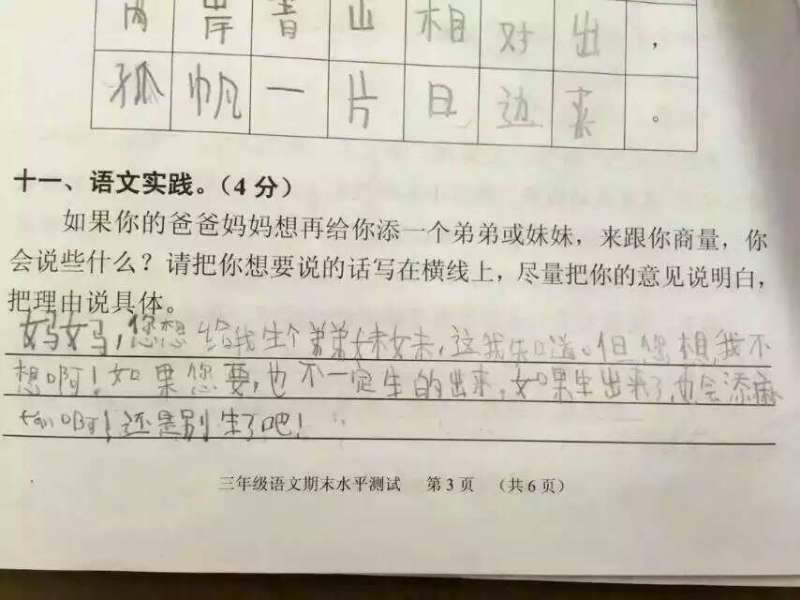 两岸青山相对出，
孤帆一片日边来。
十一、语文实践。（4 分）
如果你的爸爸妈妈想再给你添一个弟弟或妹妹，来跟你商量，你
会说些什么？请把你想要说的话写在横线上，尽量把你的意见说明白，
把理由说具体。
妈妈，您想给我生个弟弟妹妹，这我知道。但您想，我不
想啊！如果您要，也不一定生的出来，如果生出来了，也会添麻
烦啊！还是别生了吧！
三年级语文期末水平测试 第 3 页 （共 6 页）